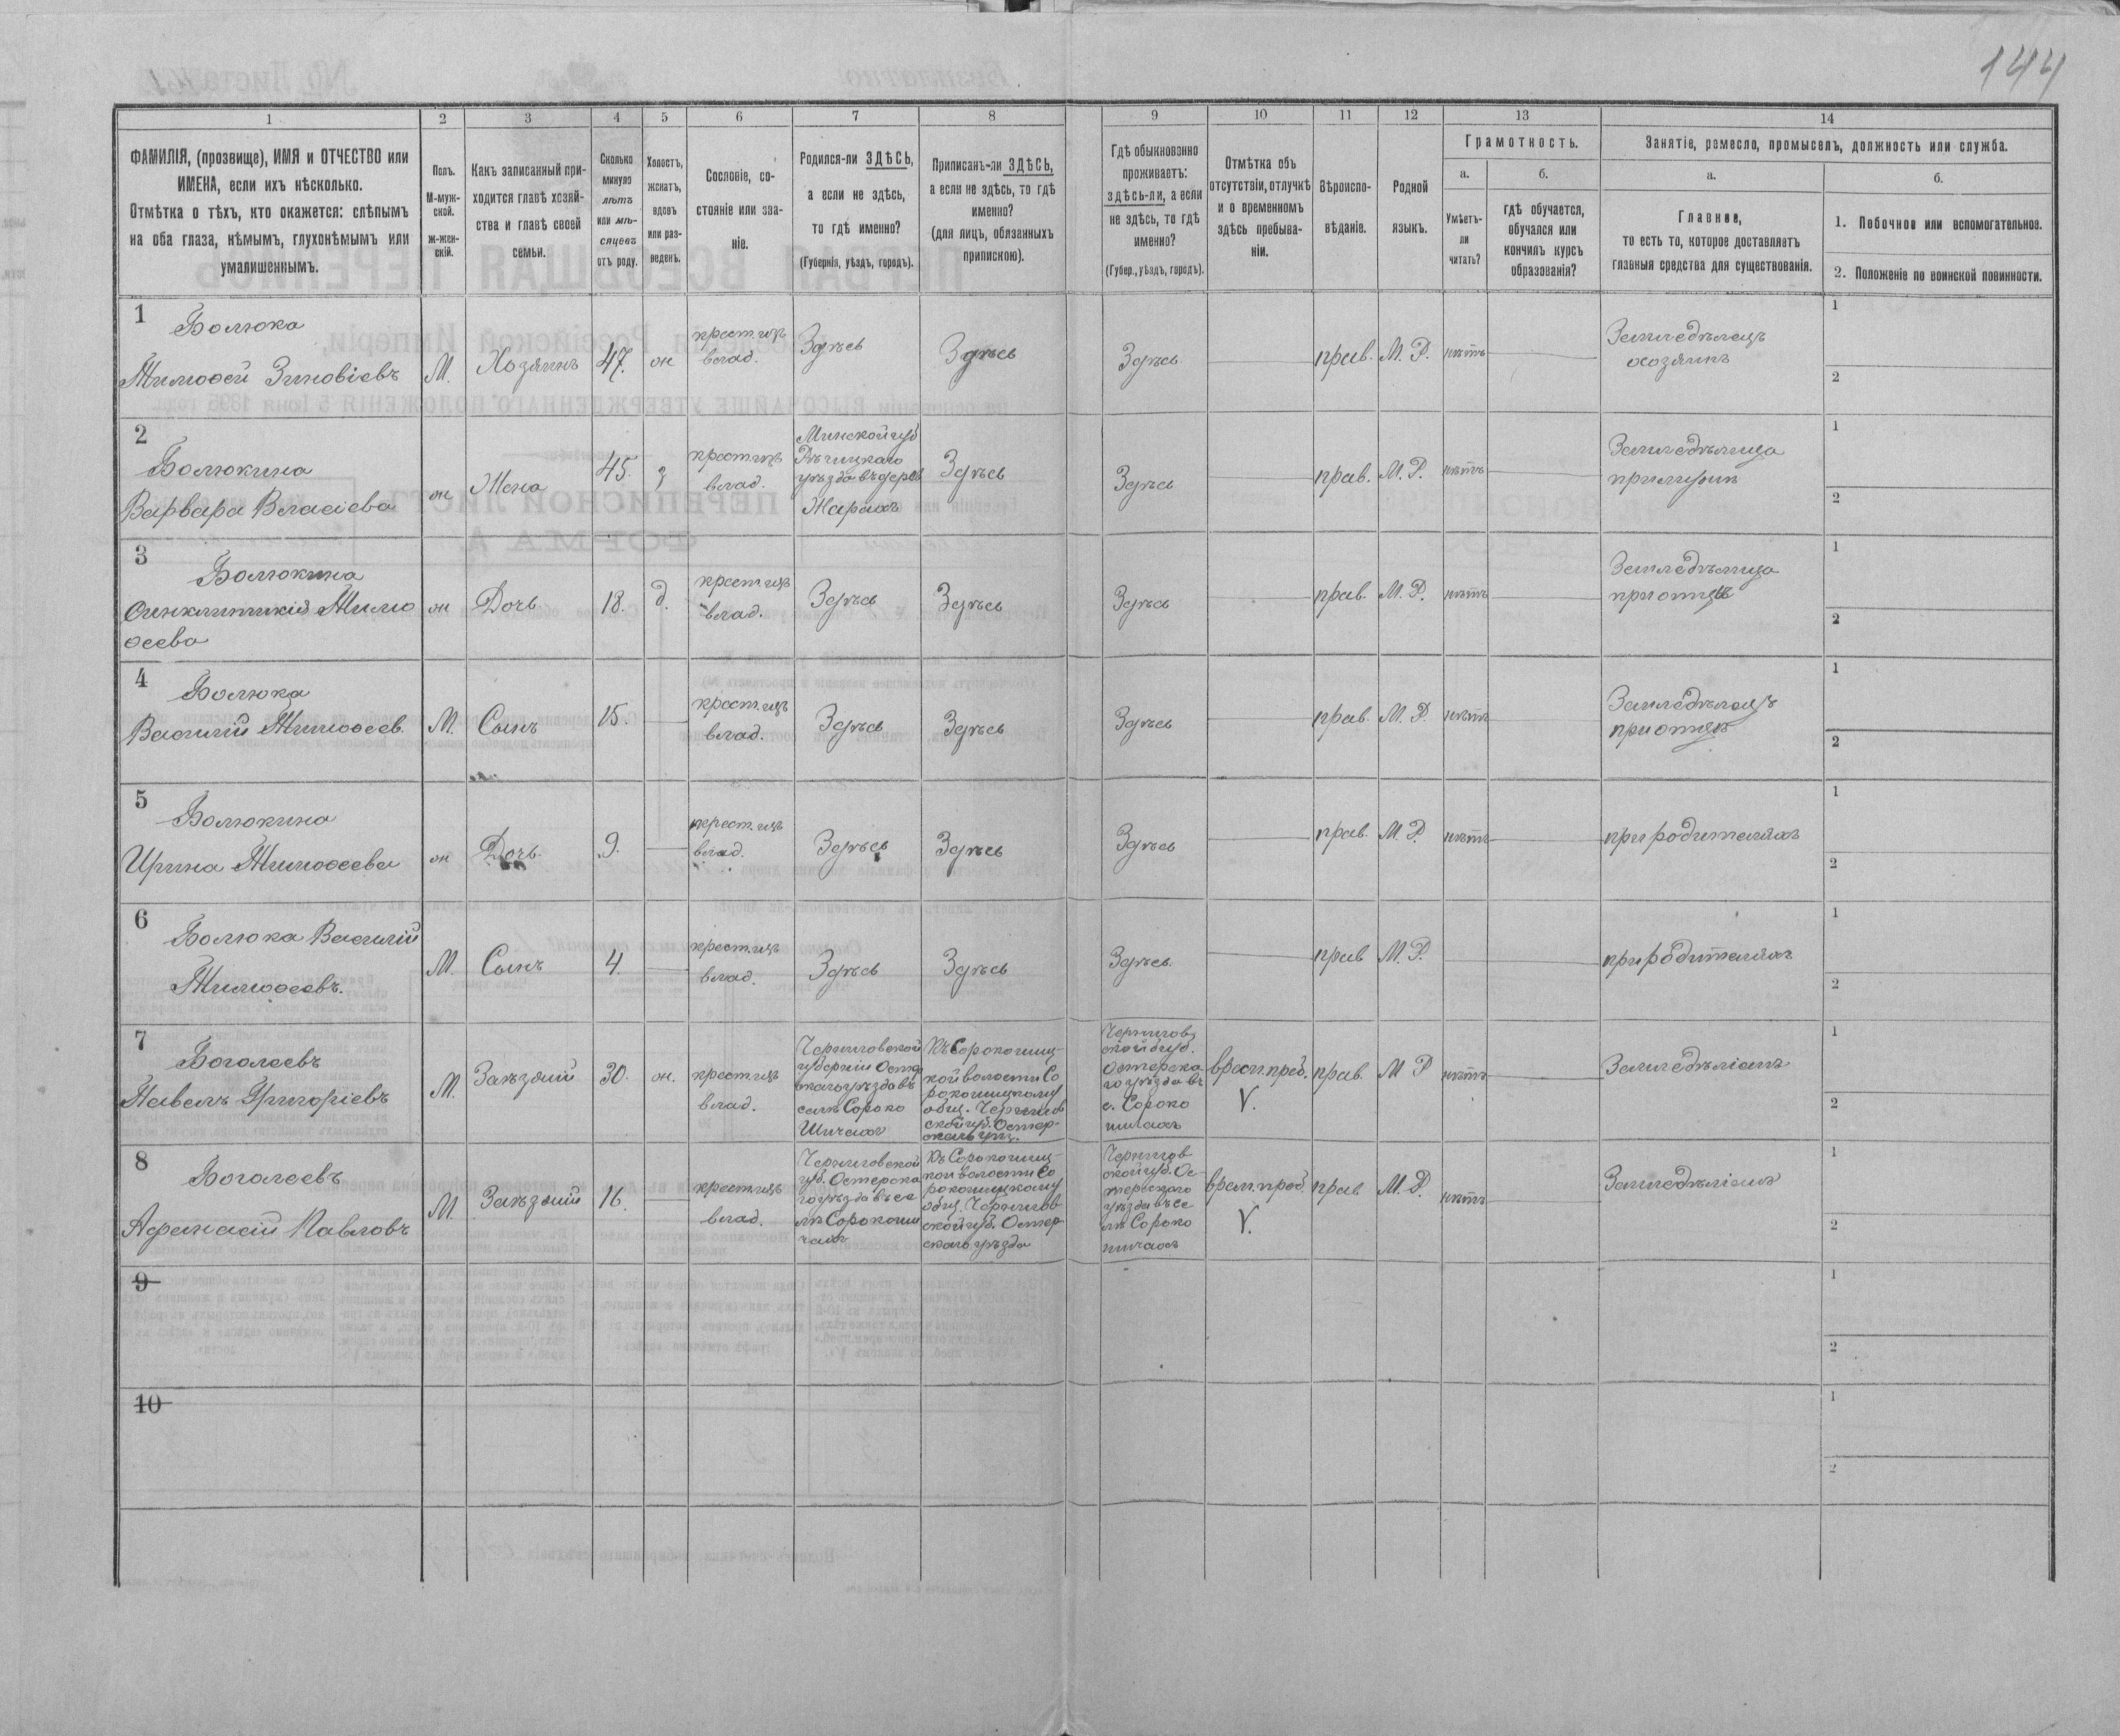 144
1
2
3
4
5
6
7
8
9
10
11
12
13
14
ФАМИЛІЯ, (прозвище), ИМЯ и ОТЧЕСТВО или
ИМЕНА, если ихъ нѣсколько.
Отмѣтка о тѣхъ, кто окажется: слѣпымъ
на оба глаза, нѣмымъ, глухонѣмымъ или
умалишеннымъ.
Полъ.
М-муж-
ской.
ж-жен-
скій.
Какъ записанный при-
ходится главѣ хозяй-
ства и главѣ своей
семьи.
Сколько
минуло
лѣтъ
или мѣ-
сяцевъ
отъ роду.
Холостъ,
женатъ,
вдовъ
или раз-
веденъ.
Сословіе, со-
стояніе или зва-
ніе.
Родился-ли ЗДѢСЬ,
а если не здѣсь,
то гдѣ именно?
(Губернія, уѣздъ, городъ).
Приписанъ-ли ЗДѢСЬ,
а если не здѣсь, то гдѣ
именно?
(для лицъ, обязанныхъ
припискою).
Гдѣ обыкновенно
проживаетъ:
здѣсь-ли, а если
не здѣсь, то гдѣ
именно?
(Губер., уѣздъ, городъ).
Отмѣтка объ
отсутствіи, отлучкѣ
и о временномъ
здѣсь пребыва-
ніи.
Вѣроиспо-
вѣданіе.
Родной
языкъ.
Грамотность.
а.
Умѣетъ-
ли
читать?
б.
гдѣ обучается,
обучался или
кончилъ курсъ
образованія?
Занятіе, ремесло, промыселъ, должность или служба.
а.
Главное,
то есть то, которое доставляетъ
главныя средства для существованія.
б.
1. Побочное или вспомогательное.
2. Положеніе по воинской повинности.
1
Болюка
Тимоѳей Зиновіевъ
М.
Хозяинъ
47.
ж
крест. изъ
влад.
Здѣсь
Здѣсь
Здѣсь
прав.
М. Р.
нѣтъ
Земледѣлецъ
хозяинъ
1
2
2
Болюкина
Варвара Власіева
ж
Жена
45
з
крест. изъ
влад.
Минской губ
Рѣчицкаго
уѣзда въ дерев
Жарахъ
Здѣсь
Здѣсь
прав.
М. Р.
нѣтъ
Земледѣлица
при мужѣ
1
2
3
Болюкина
Синклитикія Тимо
ѳеева
ж
Дочь
18.
д.
крест. изъ
влад.
Здѣсь
Здѣсь
Здѣсь
прав.
М. Р.
нѣтъ
Земледѣлица
при отцѣ
1
2
4
Болюка
Василій Тимоѳеев.
М.
Сынъ
15.
крест. изъ
влад.
Здѣсь
Здѣсь
Здѣсь
прав.
М. Р.
нѣтъ
Земледѣлецъ
при отцѣ
1
2
5
Болюкина
Ирина Тимоѳеева
ж
Дочь.
9.
крест. изъ
влад.
Здѣсь
Здѣсь
Здѣсь
прав.
М. Р.
нѣтъ
при родителяхъ
1
2
6
Болюка Василій
Тимоѳеевъ.
М.
Сынъ
4.
крест. изъ
влад.
Здѣсь
Здѣсь
Здѣсь.
прав
М. Р.
при родителяхъ
1
2
7
Боголеевъ
Павелъ Григоріевъ
М.
Заѣзжій
30.
ж.
крест. изъ
влад.
Черниговской
губерніи Остер
скаго уѣзда въ
селѣ Сороко
Шичахъ
Къ Сорокошиц-
кой волости Со
рокошицкому
общ. Чернигов
ской губ. Остер-
скаго уѣз.
Чернигов
ской губ.
Остерска
го уѣзда въ
с. Сороко
шичахъ
врем. преб.
V.
прав.
М Р
нѣтъ
1
2
8
Боголеевъ
Афанасій Павловъ
М.
Заѣзжій
16.
крест. изъ
влад.
Черниговской
губ. Остерска
го уѣзда въ се
лѣ Сорокоши
чахъ
Къ Сорокошиц-
кой волости Со
рокошицкому
общ. Чернигов
ской губ. Остер
скаго уѣзда
Чернигов
ской губ. Ос-
терскаго
уѣзда въ се
лѣ Сороко
шичахъ
врем. преб.
V.
прав
М. Р.
нѣтъ
1
2
9
1
2
10
1
2